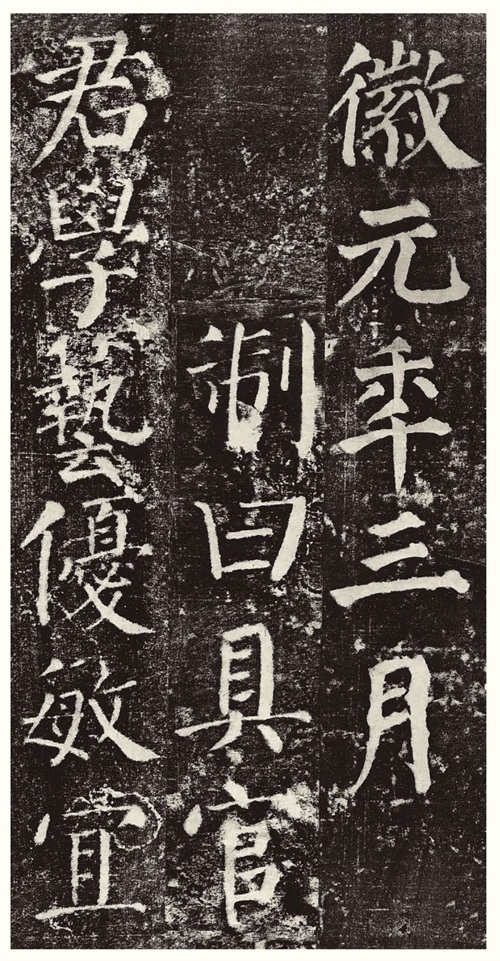 徽元年三月
制曰具官
君學藝優敏宜